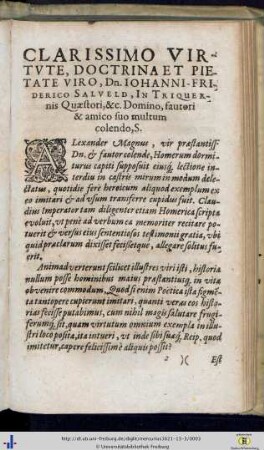 CLARISSIMO VIR-
TVTE, DOCTRINA ET PIE-
TATE VIRO, Dn. IOHANNI-FRI-
DERICO SALVELD, IN TRIQUER-
nis Quæstori, &c. Domino, fautori
& amico suo multum
colendo, S.
ALexander Magnus, vir præstantiss.
Dn. & fautor colende, Homerum dormi-
turus capiti supposuit eiusq; lectione in-
terdiu in castris mirum in modum dele-
ctatus, quotidie ferè heroicum aliquod exemplum ex
eo imitari & ad usum transferre cupidus fuit. Clau-
dius Imperator tam diligenter etiam Homerica scripta
evolvit, ut penè ad verbum ea memoriter recitare po-
tuerit & versus eius sententiosos testimonii gratia, ubi
quid præclarum dixisset fecissetque, allegare solitus fu-
erit.
Animadverterunt scilicet illustres viri isti, historia
nullum posse hominibus maius præstantiusq; in vita
obvenire commodum. Quod si enim Poetica ista figmen-
ta tantopere cupierunt imitari, quanti veras eos histo-
rias fecisse putabimus, cum nihil magis salutare frugi-
ferumq; sit, quam virtutum omnium exempla in illu-
stri loco posita, ita intueri, ut inde sibi suæq; Reip. quod
imitetur, capere felicissimè aliquis possit?
)( Est
© Universitätsbibliothek Freiburg